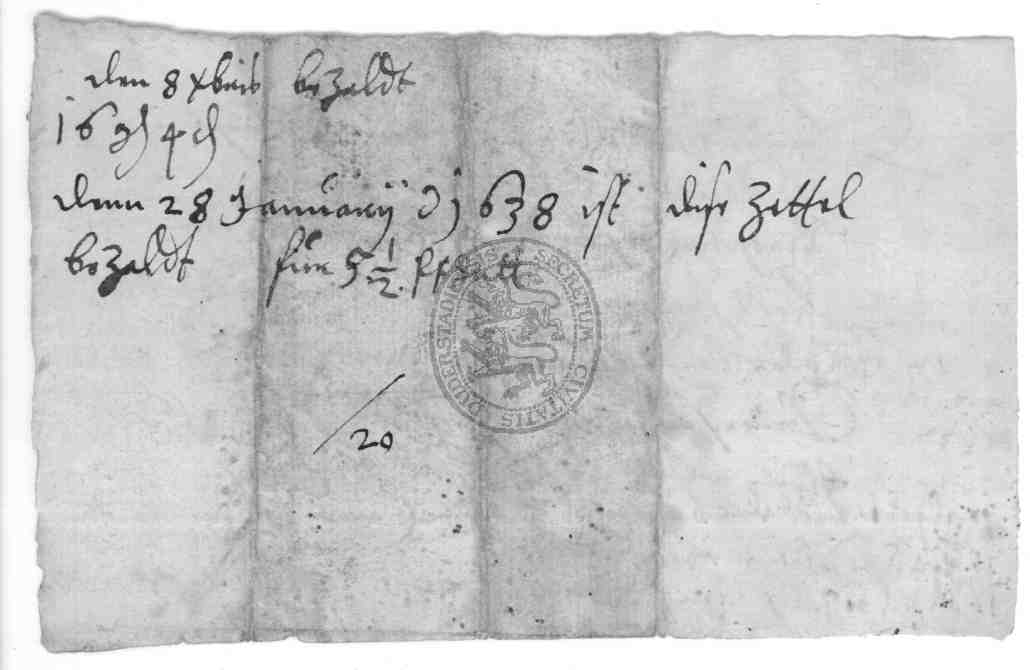 den 8 xbris bezaldt
16 gl 4 d
denn 28 Januarij Aº 1638 ist dise Zettel
bezaldt für 5 1/2
/20
SECRETUM CIVITATIS DUDERSTADIENSIS